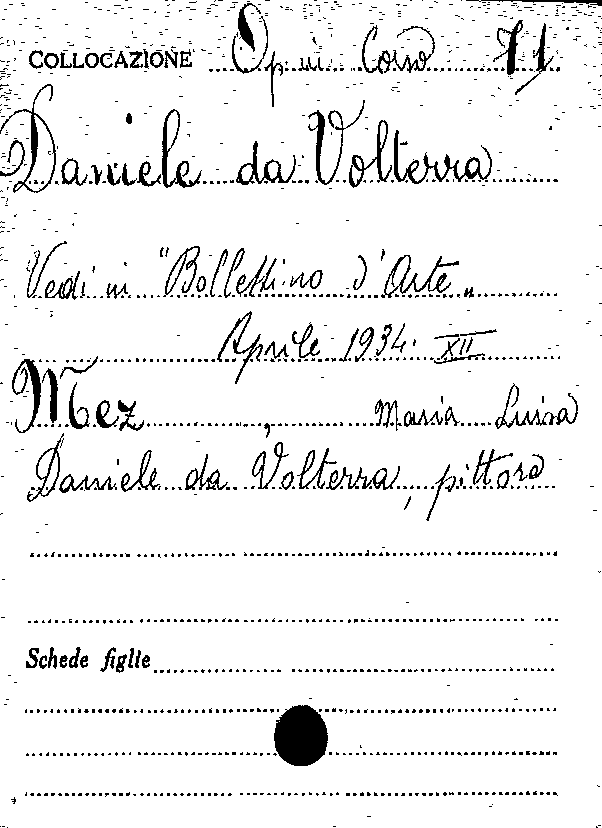 COLLOCAZIONE Op in Corso 71
Daniele da Volterra
Vedi in "Bollettino d'Arte„
Aprile 1934. XII
Mez, Maria Luisa
Daniele da Volterra, pittore
Schede figlie